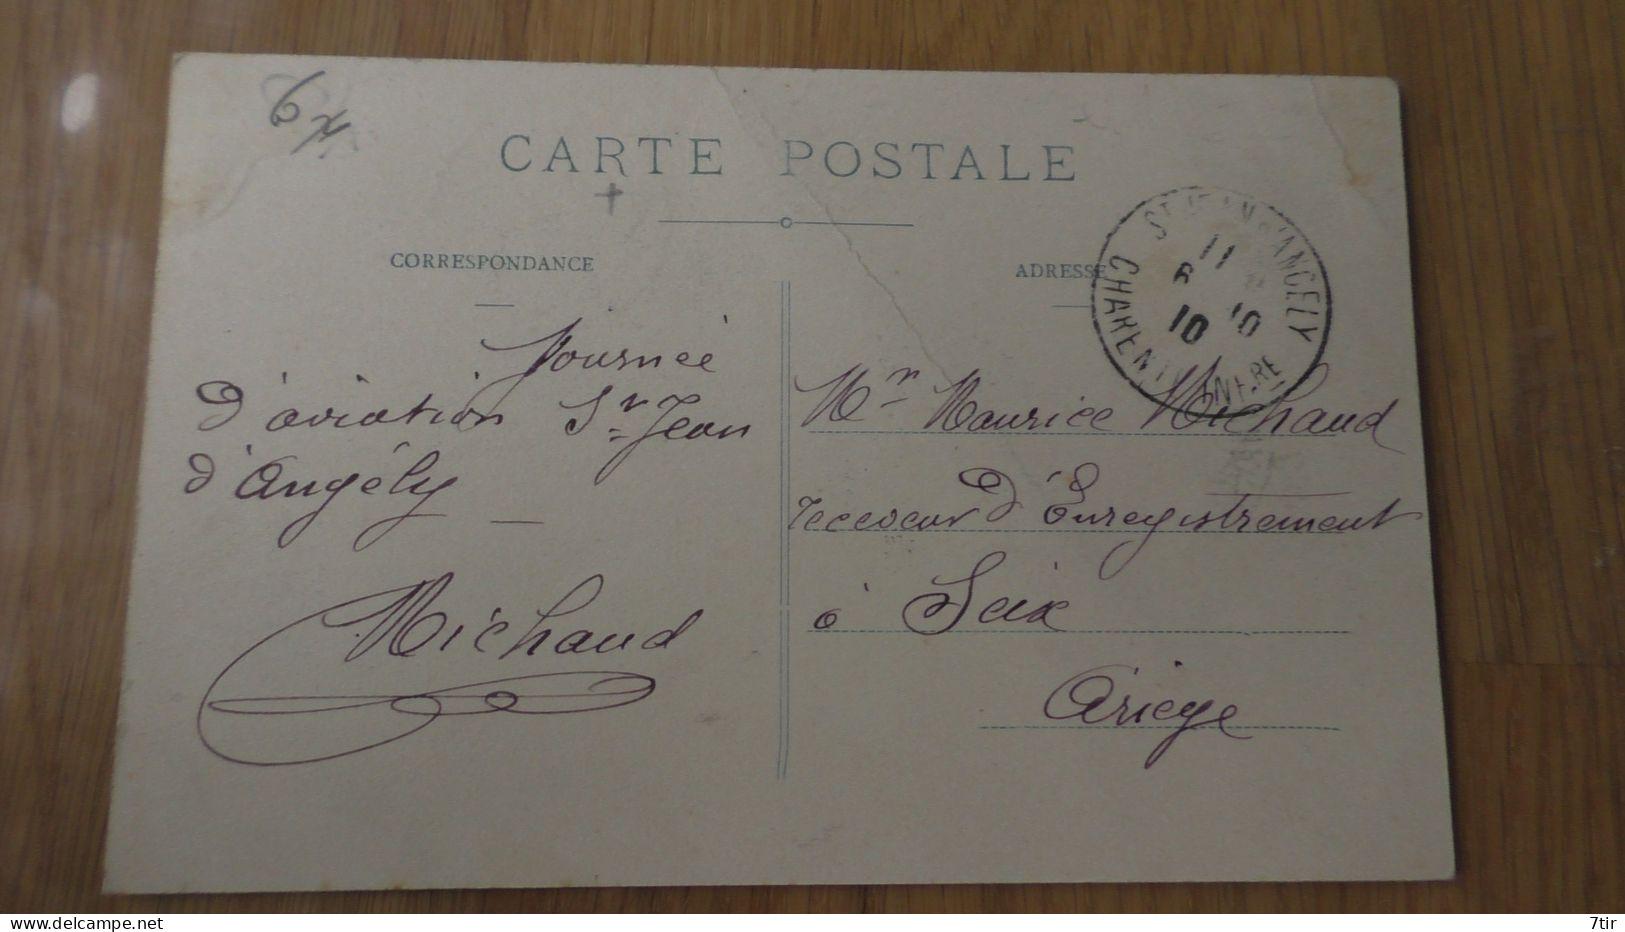 CARTE POSTALE
CORRESPONDANCE
ADRESSE
ST JEAN D'ANGELY
11
6 10
10
Journée
d'aviation St Jean
d'Angély —
Michaud
Mr Maurice Michaud
receveur d'Enregistrement
à Seix
Ariège
Delcampe.net
7tir